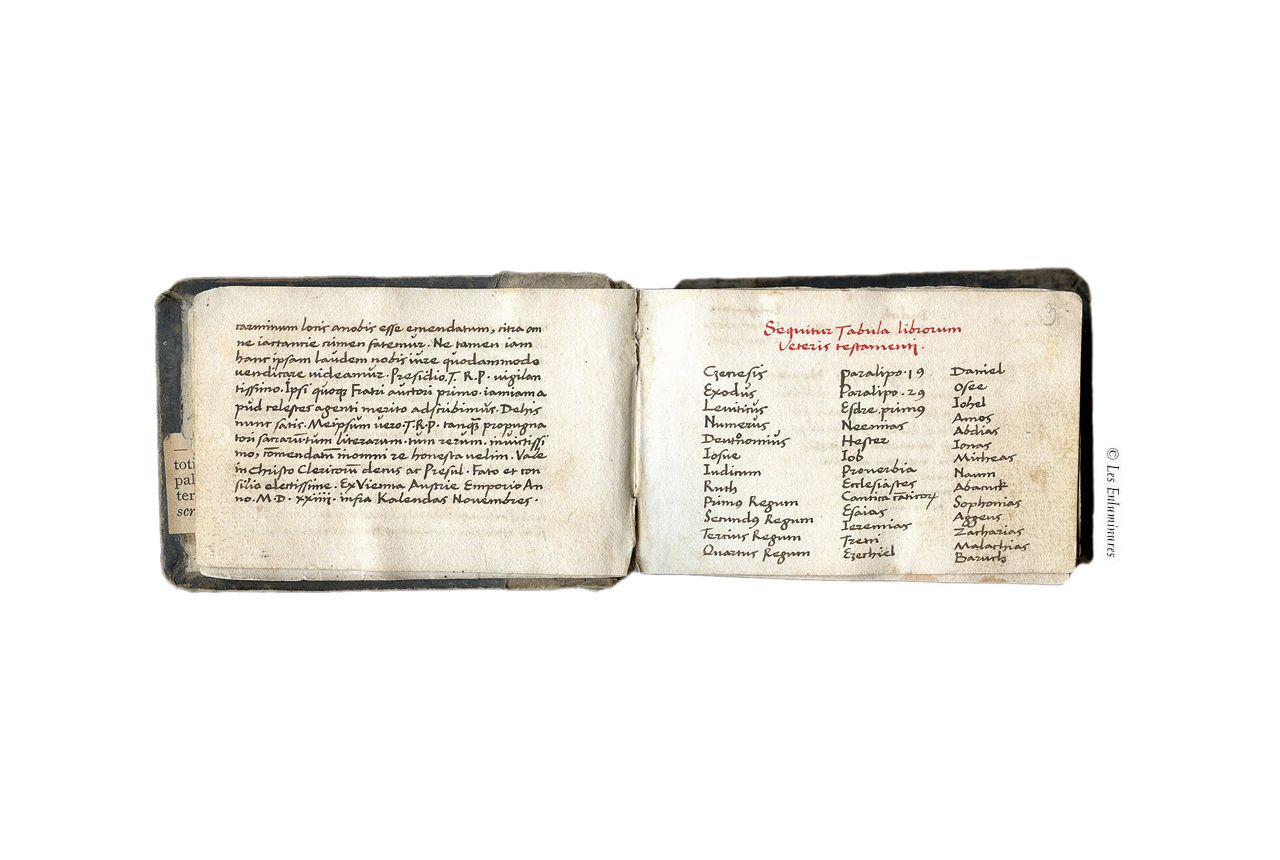 carminum locis anobis esse emendatum, citra om
ne iactantie crimen fatemur. Ne tamen iam
hanc ipsam laudem nobis iure quodammodo
vendicare videamur. Presidio. T. R. P. vigilan
tissimo. Ipsi quoqꝫ Fratri auctori primo. iamiam a
pud celestes agenti merito adscribimus. De his
nunc satis. Meipsum vero. T. R. P. tanqꝫ propugna
tori sacrarū tum literarum. tum rerum. invictissi
mo, cōmendatū inomni re honesta velim. Vale
in Christo Clericorū decus ac Presul. Fato et con
silio electissime. Ex Vienna Austrie Emporio An
no. M. D. xxiiij. infra Kalendas Novembres.
toti
pal
ter
scr
3
Sequitur Tabula librorum
Veteris testamenti.
Genesis
Exodus
Leuiticus
Numerus
Deutʳonomius
Iosue
Iudicum
Ruth
Primꝰ Regum
Secundꝰ Regum
Tercius Regum
Quartus Regum
Paralipo. 1ꝰ
Paralipo. 2ꝰ
Esdre primꝰ
Neemias
Hester
Iob
Proverbia
Ecclesiastes
Cantica cāticoꝝ
Esaias
Ieremias
Treni
Ezechiel
Daniel
Osee
Iohel
Amos
Abdias
Ionas
Micheas
Naum
Abacuck
Sophonias
Aggeus
Zacharias
Malachias
Baruch
© Les Enluminures